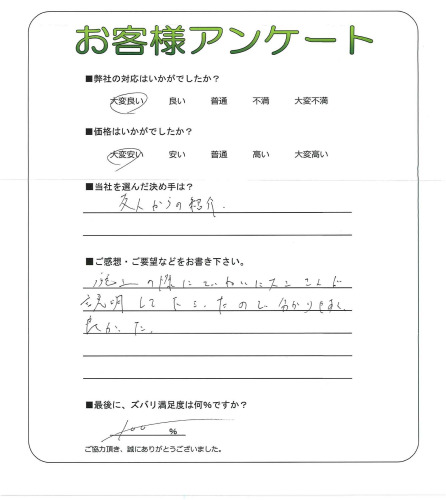 お客様アンケート
■弊社の対応はいかがでしたか?
大変良い 良い 普通 不満 大変不満
■価格はいかがでしたか?
大変安い 安い 普通 高い 大変高い
■当社を選んだ決め手は?
友人からの紹介.
■ご感想・ご要望などをお書き下さい。
施工の際にていねいに
説明してもらったので分かりやすく
良かった.
■最後に、ズバリ満足度は何%ですか?
100 %
ご協力頂き、誠にありがとうございました。